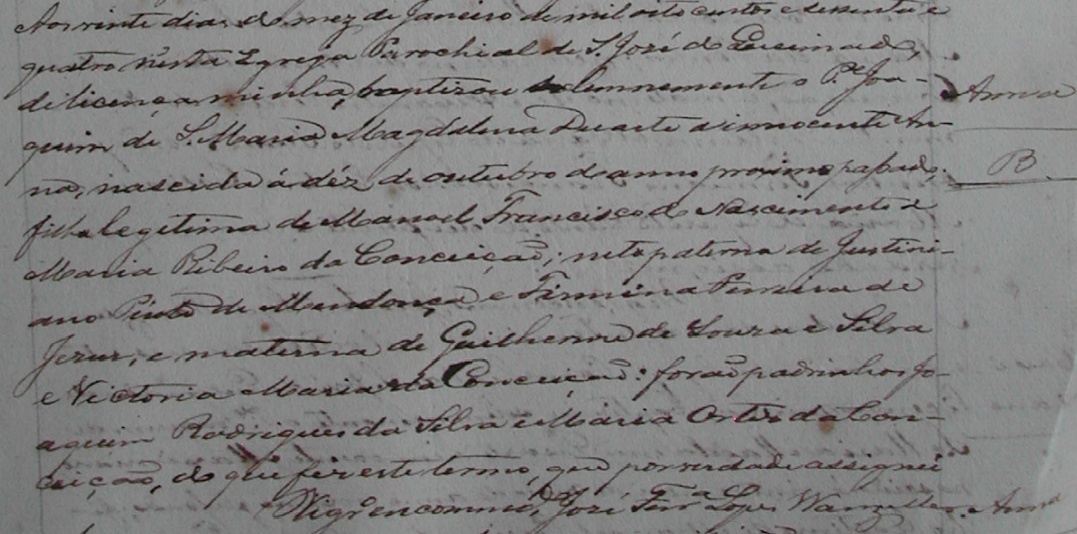 Aos vinte dias do mez de Janeiro de mil oito centos e sessenta e
quatro nesta Igreja Parochial de S. José do Queimado,
de licença minha, baptizou solemnemente o P.e Joa-
quim de S. Maria Magdalena Duarte a innocente An-
na, nascida á déz de outubro do anno proximo passado.
filha legitima de Manoel Francisco do Nascimento e
Maria Ribeiro da Conceição; neta paterna de Justini-
ano Pinto de Mendonça e Firmina Ferreira de
Jezus, e materna de Guilherme de Souza e Silva
e Victoria Maria da Conceição: forão padrinhos Jo-
aquim Rodrigues da Silva e Maria Ortis da Con-
ceição, do que fiz este termo, que por verdade assignei
Vigr.o encommd.o José Ferr.a Lopes Wanzeller.
Anna
B
Anna